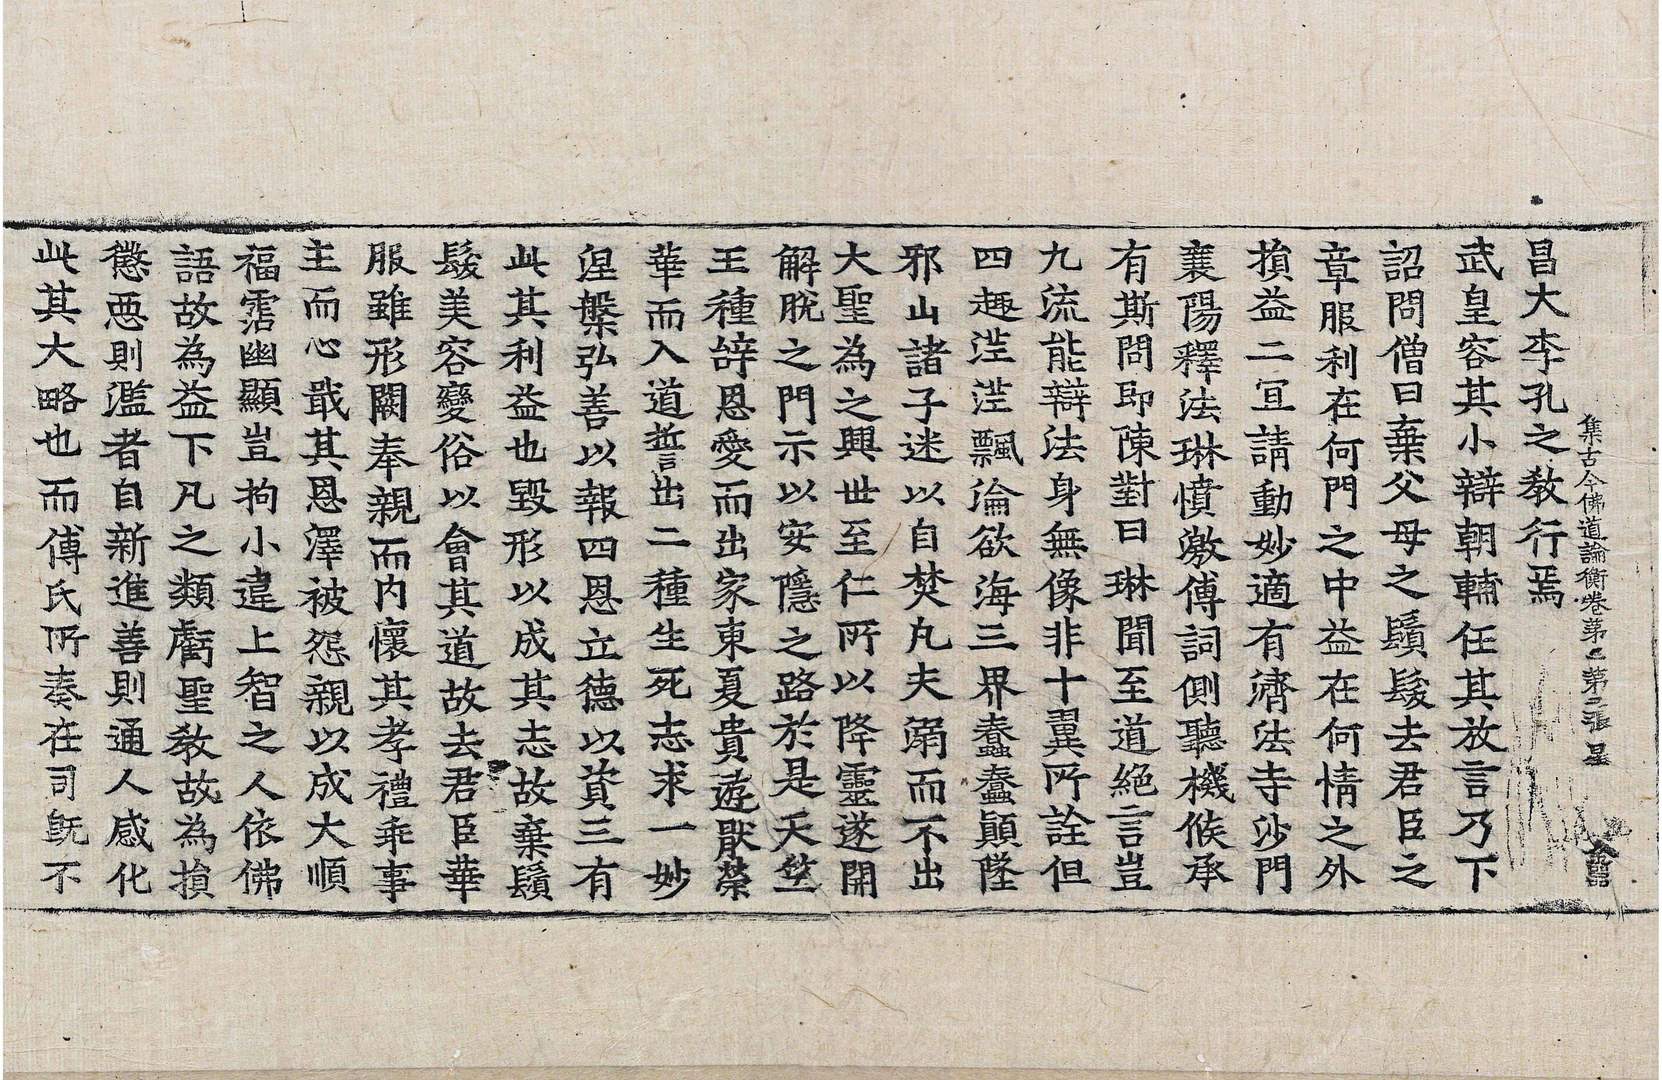 昌大李孔之敎行焉
集古今佛道論衡卷第 第二張 星
武皇容其小辯朝輔任其放言乃下
詔問僧曰棄父母之鬚髮去君臣之
章服利在何門之中益在何情之外
損益二冝請動妙適有濟法寺沙門
襄陽釋法琳憤激傅詞側聽機候承
有斯問即陳對曰琳聞至道絕言豈
九流能辯法身無像非十翼所詮但
四趣茫茫飄淪欲海三界蠢蠢顚墜
邪山諸子迷以自焚凡夫溺而不出
大聖為之興世至仁所以降靈遂開
解脫之門示以安隱之路於是天竺
王種辝恩愛而出家東夏貴遊猒榮
華而入道誓出二種生死志求一妙
涅槃弘善以報四恩立德以資三有
此其利益也毀形以成其志故棄鬚
髮美容變俗以會其道故去君臣華
服雖形闕奉親而内懷其孝禮乖事
主而心戢其恩澤被怨親以成大順
福霑幽顯豈拘小違上智之人依佛
語故為益下凡之類虧聖敎故為損
懲惡則濫者自新進善則通人感化
此其大略也而傅氏所奏在司旣不